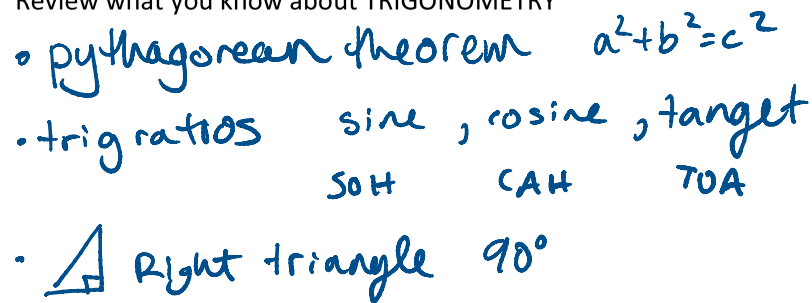 Review what you know about TRIGONOMETRY
• pythagorean theorem a²+b²=c²
• trig ratios sine, cosine, tanget
SOH CAH TOA
• Right triangle 90°